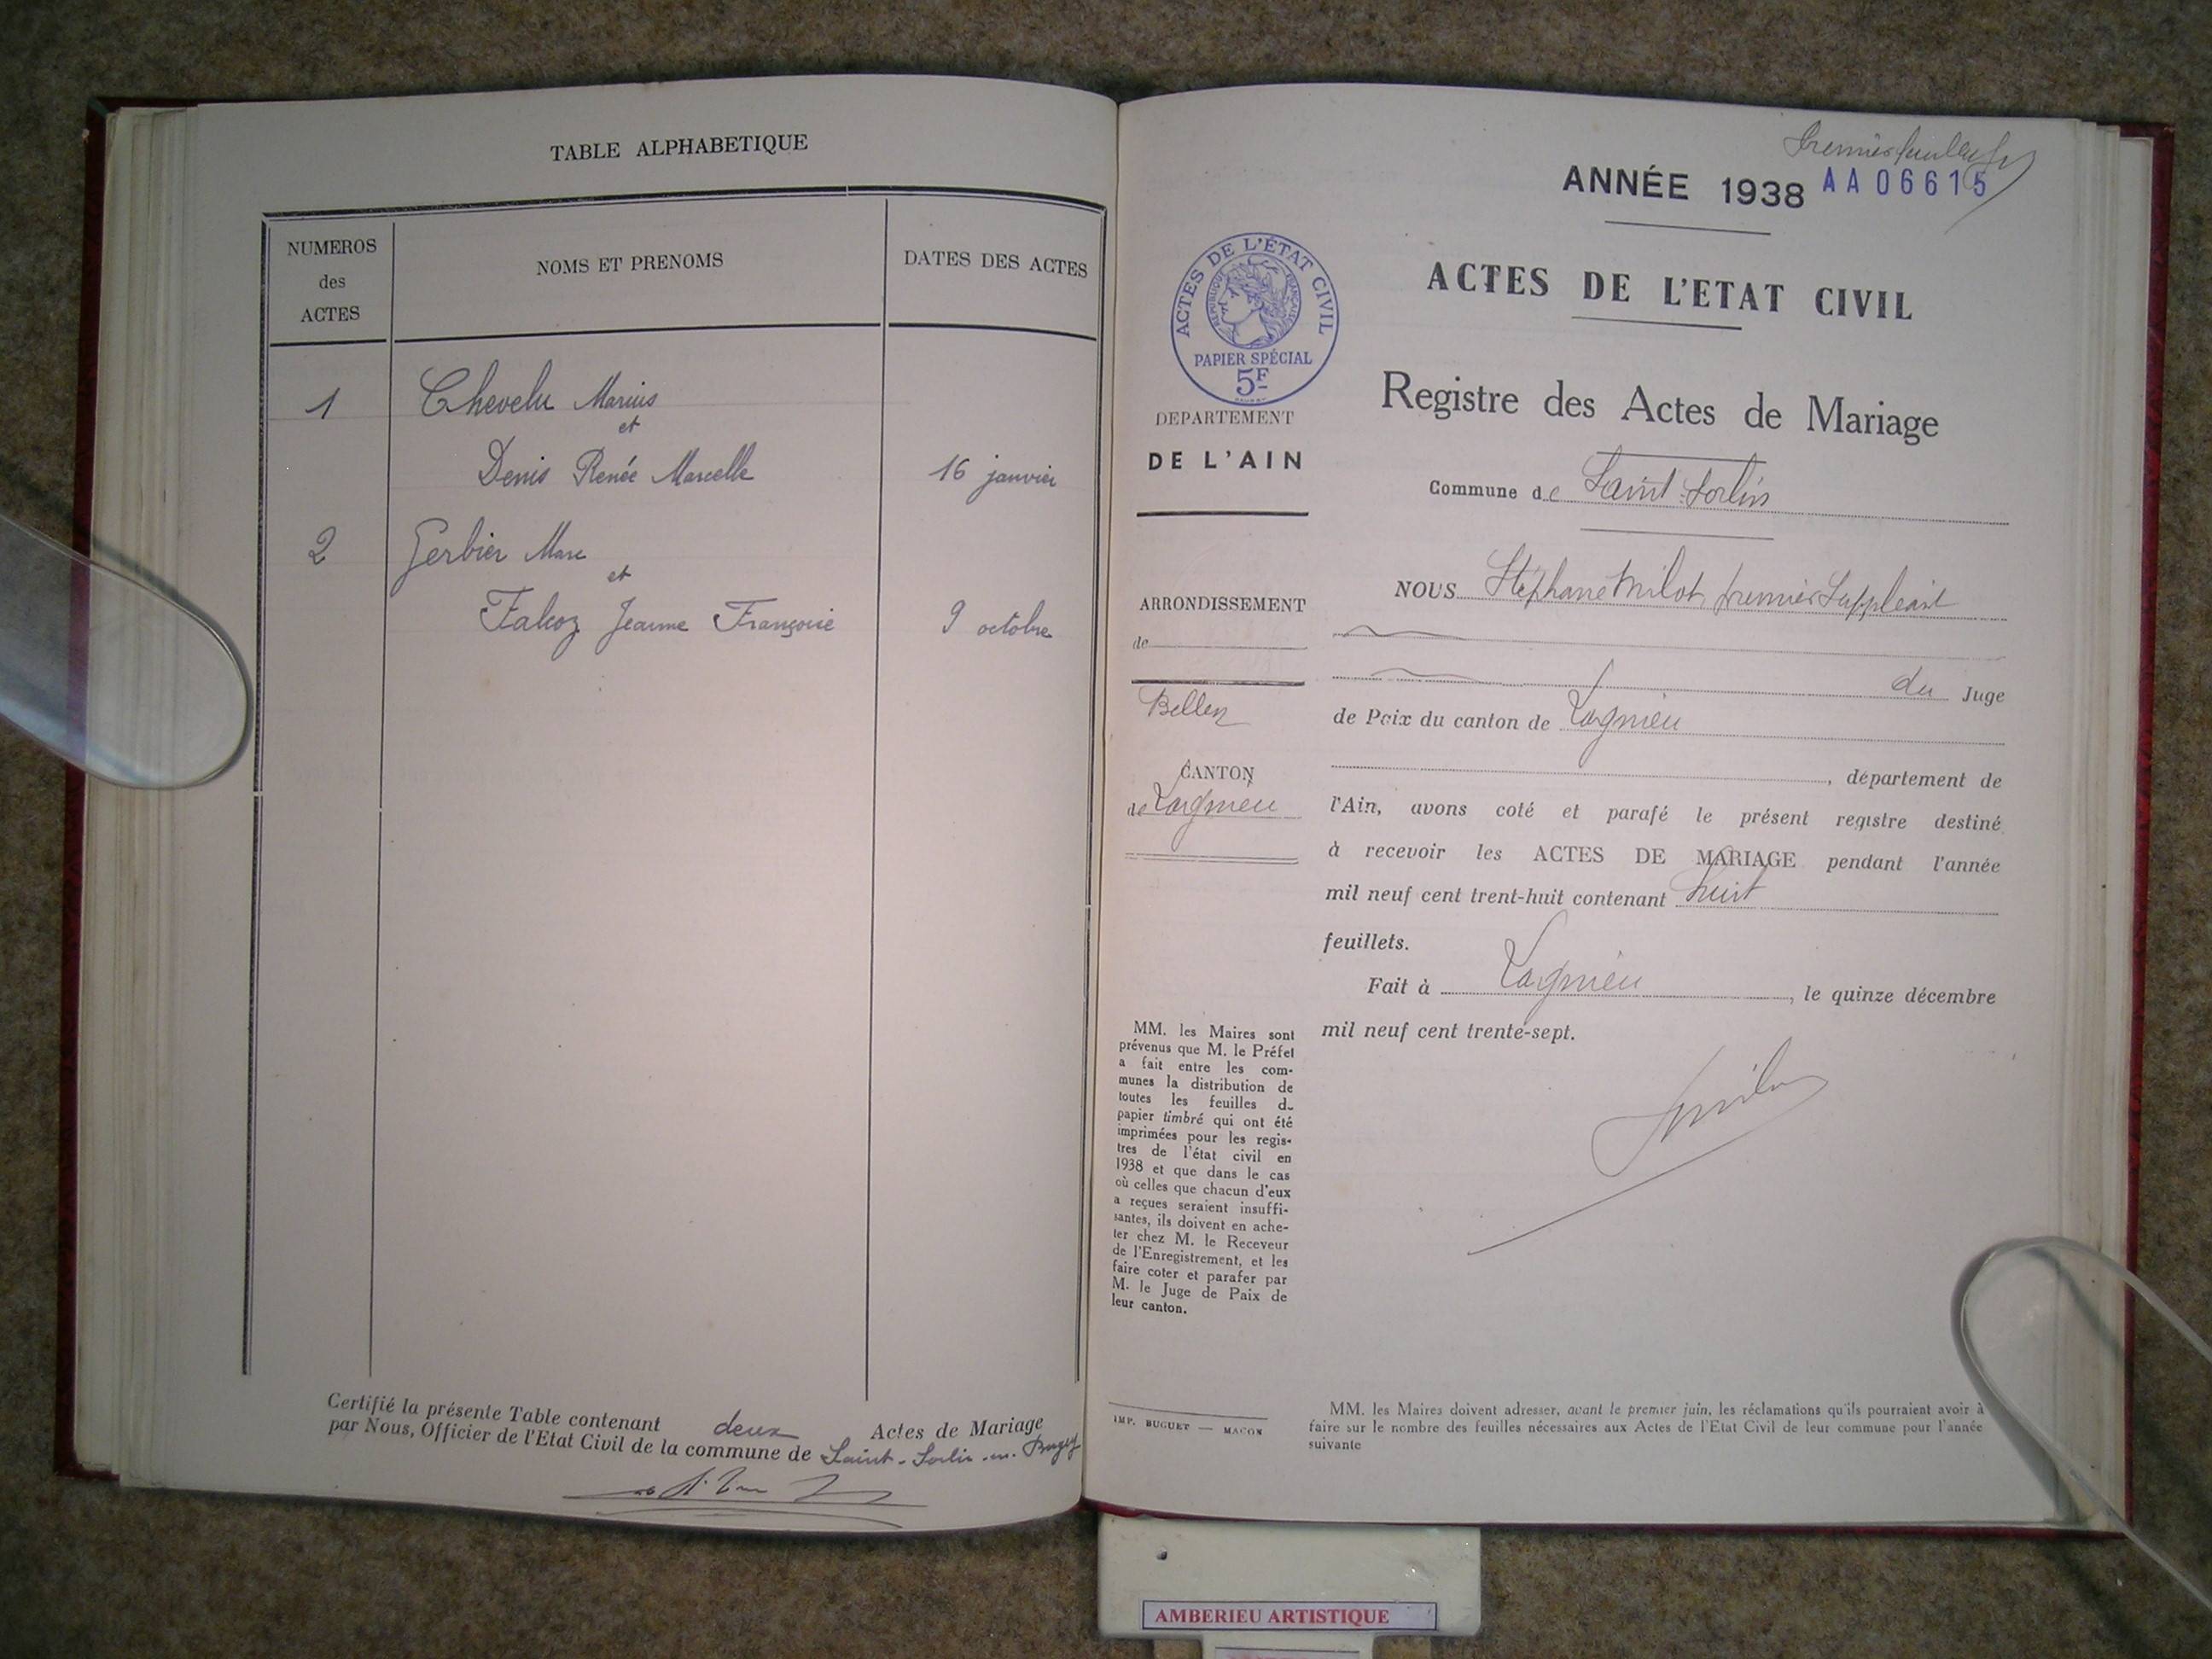 TABLE ALPHABETIQUE
NUMEROS
des
ACTES
NOMS ET PRENOMS
DATES DES ACTES
1
Chevelu Marius
et
Denis Renée Marcelle
16 janvier
2
Gerbier Marc
et
Falcoz Jeanne Françoise
9 octobre
Certifié la présente Table contenant deux Actes de Mariage
par Nous, Officier de l'Etat Civil de la commune de Saint-Sorlin-en-Bugey
premier feuillet
ANNÉE 1938
AA06615
ACTES DE L'ÉTAT CIVIL
RÉPUBLIQUE FRANÇAISE
PAPIER SPÉCIAL
5F
ACTES DE L'ETAT CIVIL
Registre des Actes de Mariage
DEPARTEMENT
DE L'AIN
Commune de Saint-Sorlin
ARRONDISSEMENT
de
Belley
CANTON
de Lagnieu
NOUS Stéphane Milot, premier Suppléant
du Juge
de Paix du canton de Lagnieu
, département de
l'Ain, avons coté et parafé le présent registre destiné
à recevoir les ACTES DE MARIAGE pendant l'année
mil neuf cent trent-huit contenant huit
feuillets.
Fait à Lagnieu, le quinze décembre
mil neuf cent trente-sept.
MM. les Maires sont
prévenus que M. le Préfet
a fait entre les com-
munes la distribution de
toutes les feuilles de
papier timbré qui ont été
imprimées pour les regis-
tres de l'état civil en
1938 et que dans le cas
où celles que chacun d'eux
a reçues seraient insuffi-
santes, ils doivent en ache-
ter chez M. le Receveur
de l'Enregistrement, et les
faire coter et parafer par
M. le Juge de Paix de
leur canton.
IMP. BUGUET — MACON
MM. les Maires doivent adresser, avant le premier juin, les réclamations qu'ils pourraient avoir à
faire sur le nombre des feuilles nécessaires aux Actes de l'Etat Civil de leur commune pour l'année
suivante
AMBERIEU ARTISTIQUE